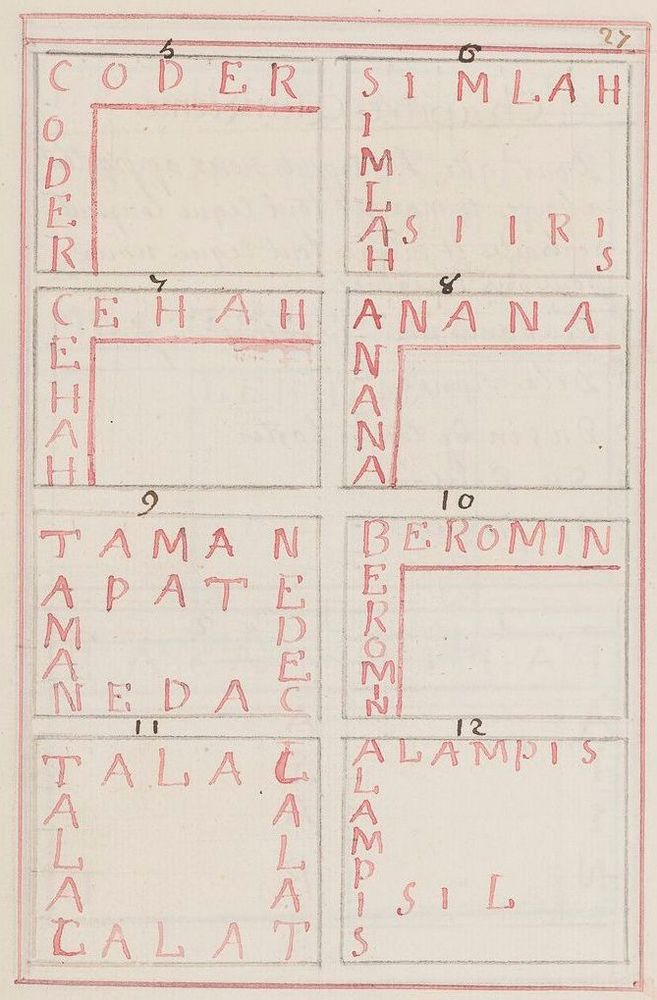 27
5
C O D E R
O
D
E
R
6
S I M L A H
I
M
L
A S I I R I
H S
7
C E H A H
E
H
A
H
8
A N A N A
N
A
N
A
9
T A M A N
A P A T E
M D
A E
N E D A C
10
B E R O M I N
E
R
O
M
I
N
11
T A L A C
A A
L L
A A
C A L A T
12
A L A M P I S
L
A
M
P
I S I L
S